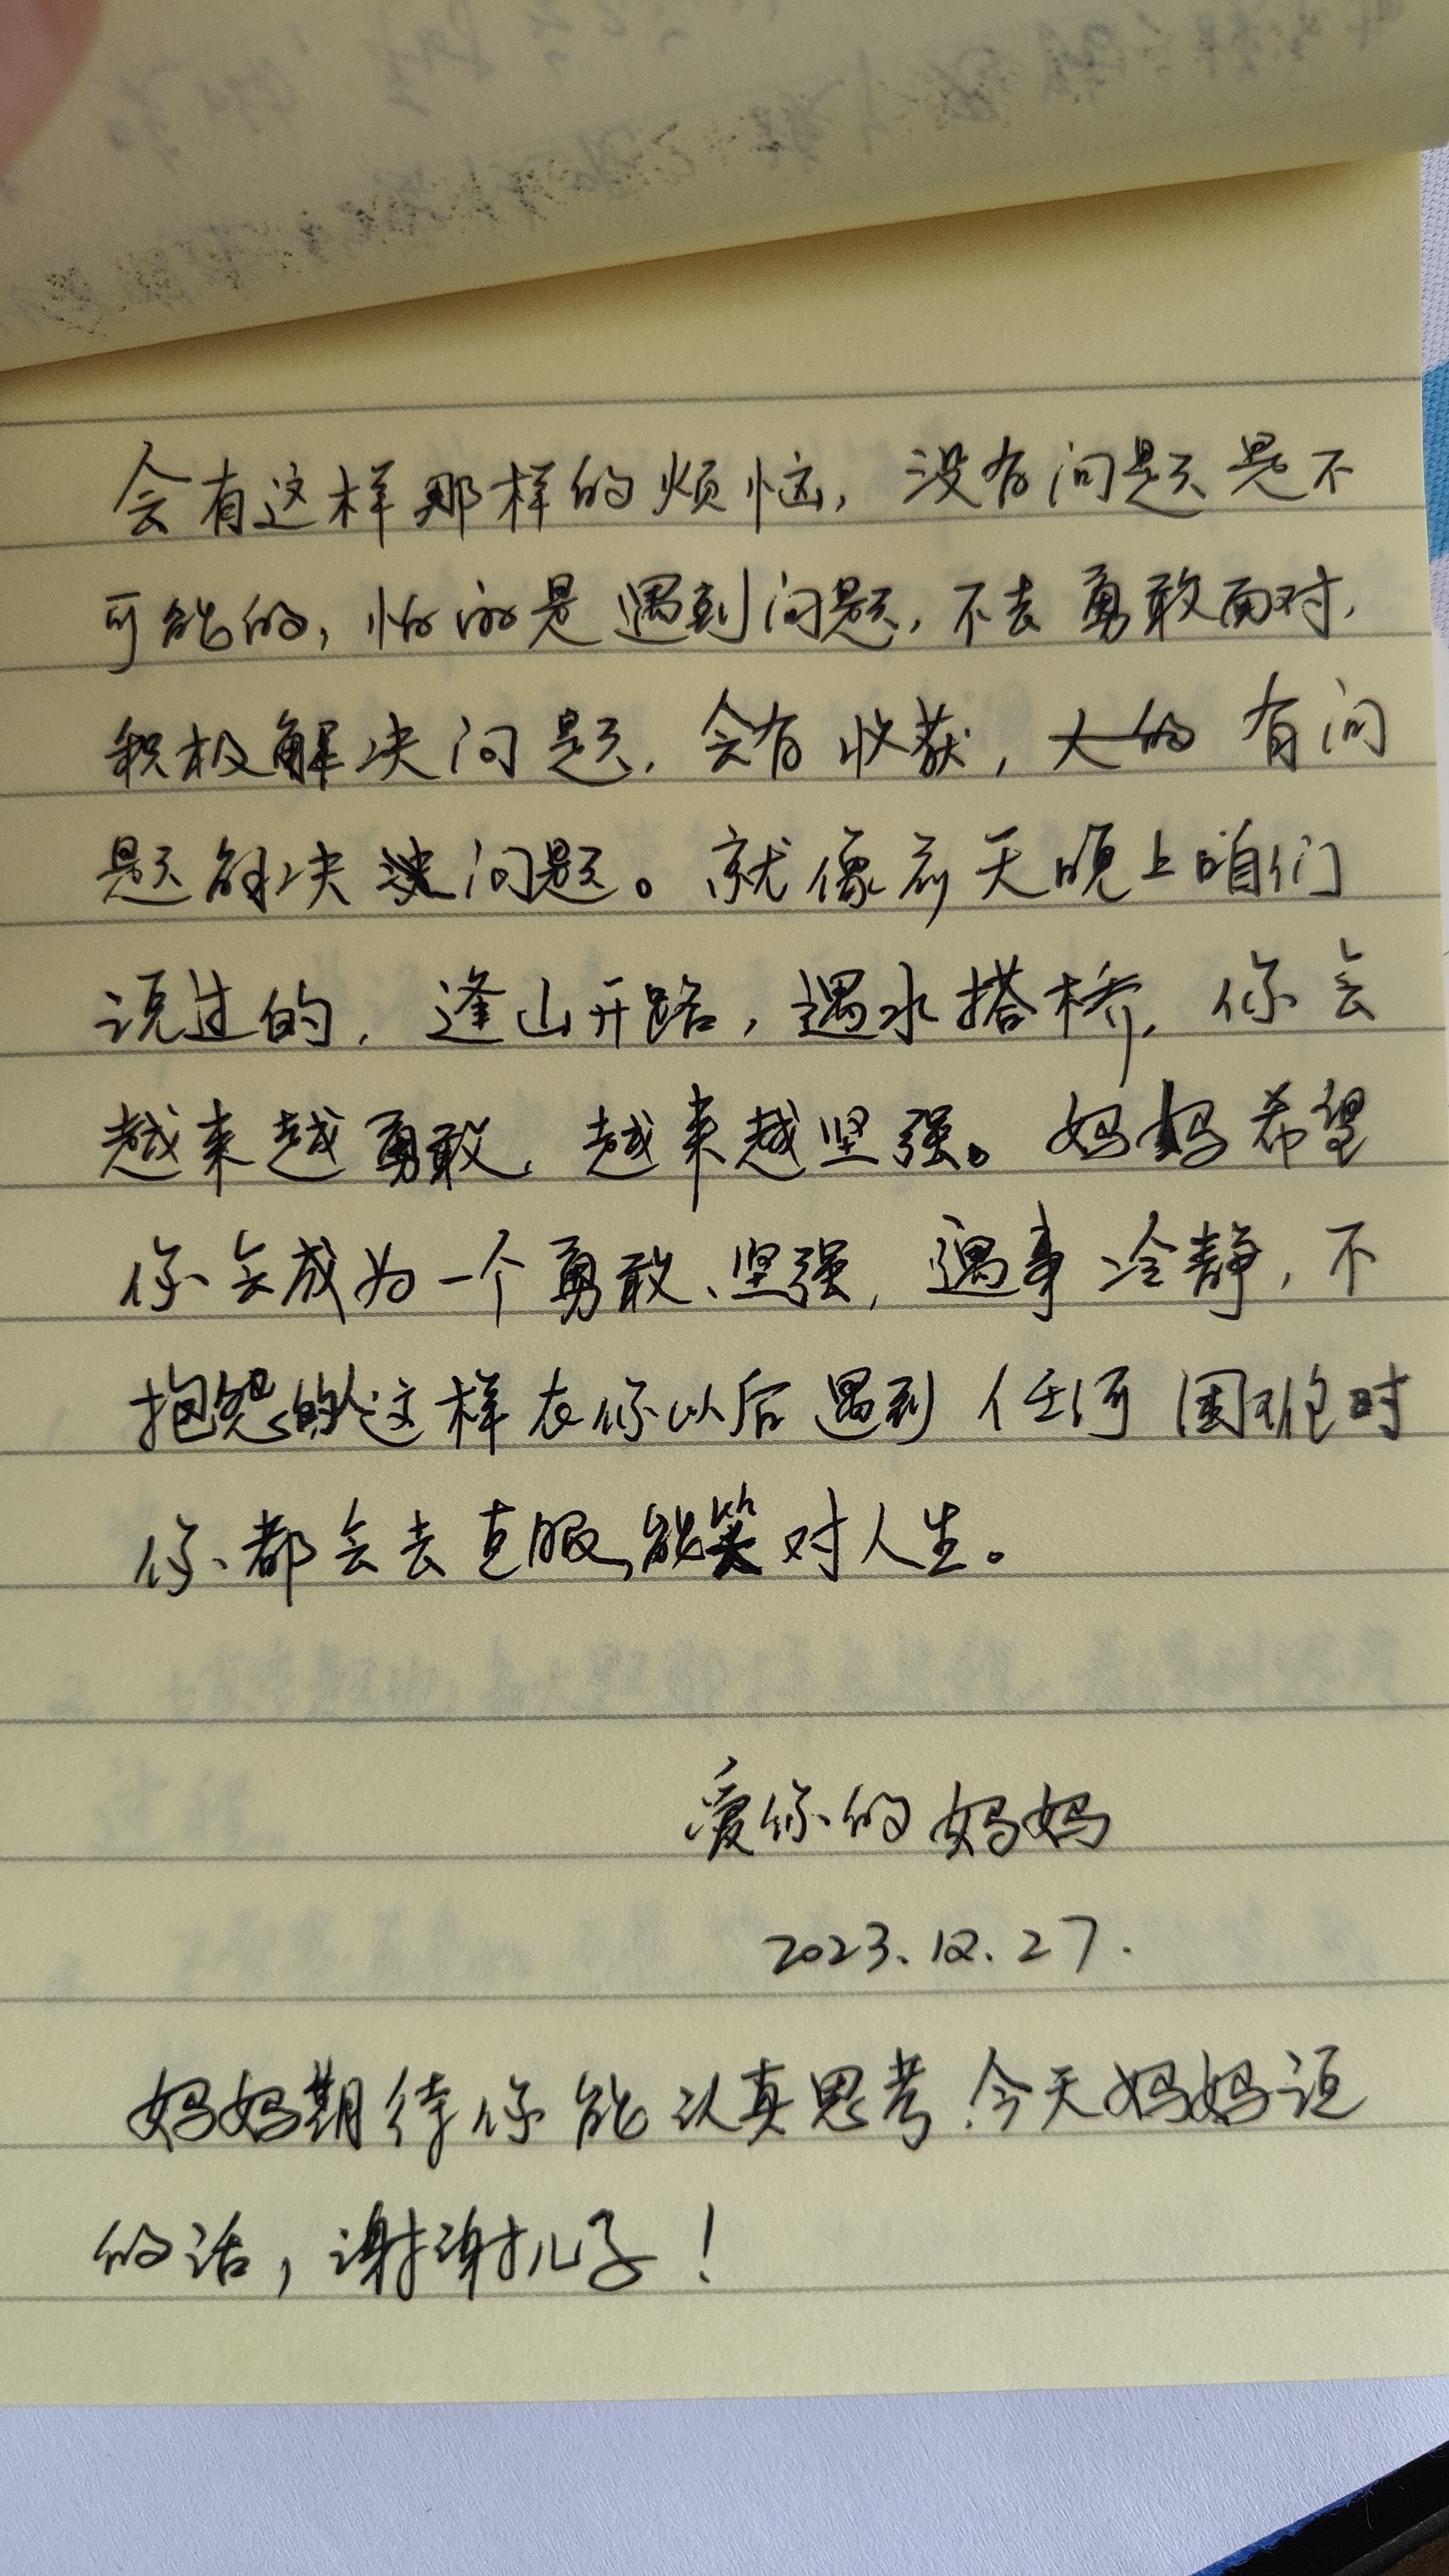 会有这样那样的烦恼，没有问题是不
可能的，怕的是遇到问题，不去勇敢面对，
积极解决问题，会有收获，大的有问
题解决问题。就像前天晚上咱们
说过的，逢山开路，遇水搭桥，你会
越来越勇敢，越来越坚强。妈妈希望
你会成为一个勇敢、坚强，遇事冷静，不
抱怨的人这样在你以后遇到任何困难时
你都会去克服，能笑对人生。
爱你的妈妈
2023.12.27.
妈妈期待你能认真思考，今天妈妈说
的话，谢谢儿子！